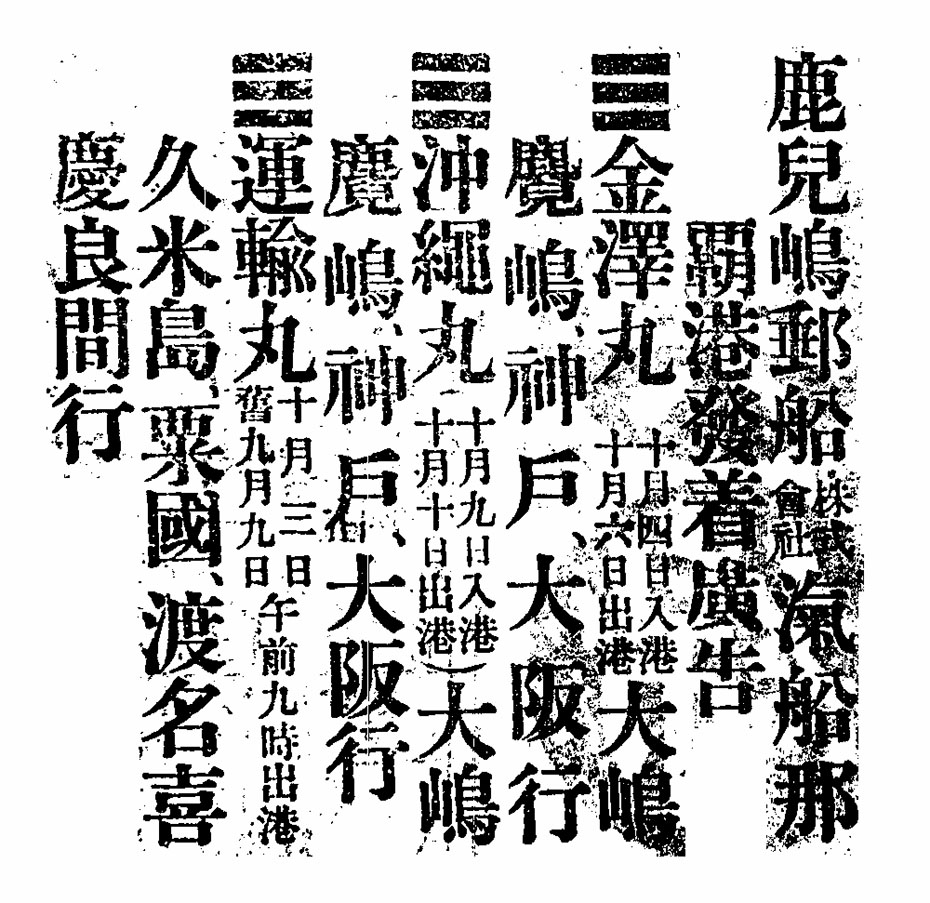 鹿兒嶋郵船株式會社滊船那
覇港發着廣告
☰金澤丸十月四日入港十月六日出港大嶋
麑嶋、神戶、大阪行
☰沖繩丸(十月九日入港十月十日出港)大嶋
麑嶋、神戶、大阪行
☰運輸丸十月三日舊九月九日午前九時出港
久米島、粟國、渡名喜
慶良間行